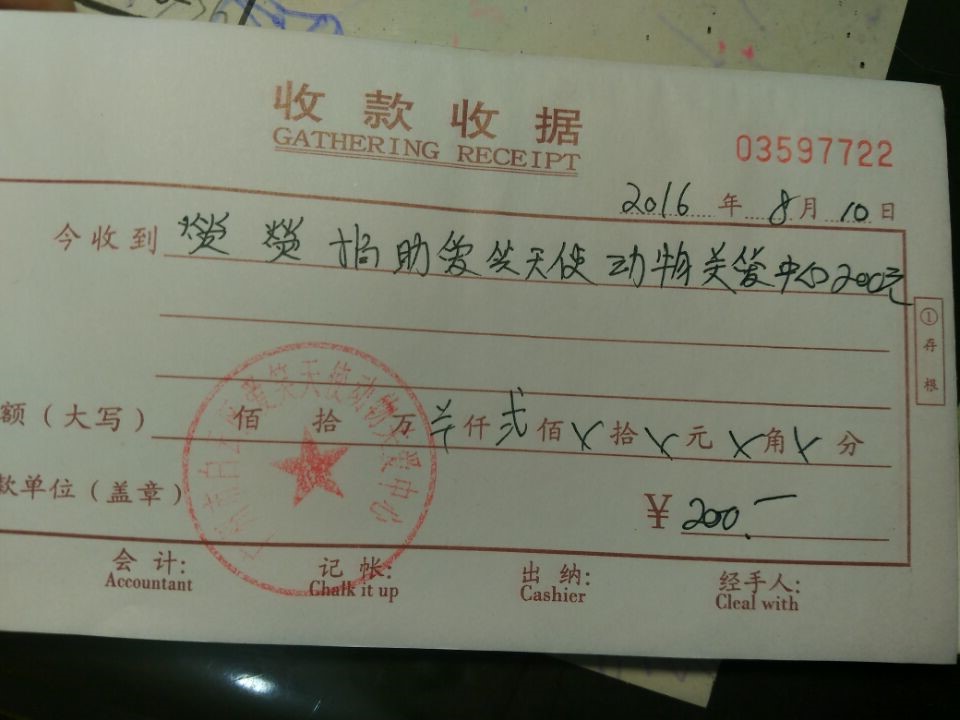 收款收据
GATHERING RECEIPT
03597722
2016年8月10日
今收到 熒熒 捐助爱笑天使动物关爱中心200元
① 存根
额（大写） 佰 拾 万 仟 弍 佰 X 拾 X 元 X 角 X 分
款单位（盖章）
¥ 200.一
爱笑天使动物关爱中心
会计: 记帐: 出纳: 经手人:
Accountant Chalk it up Cashier Cleal with